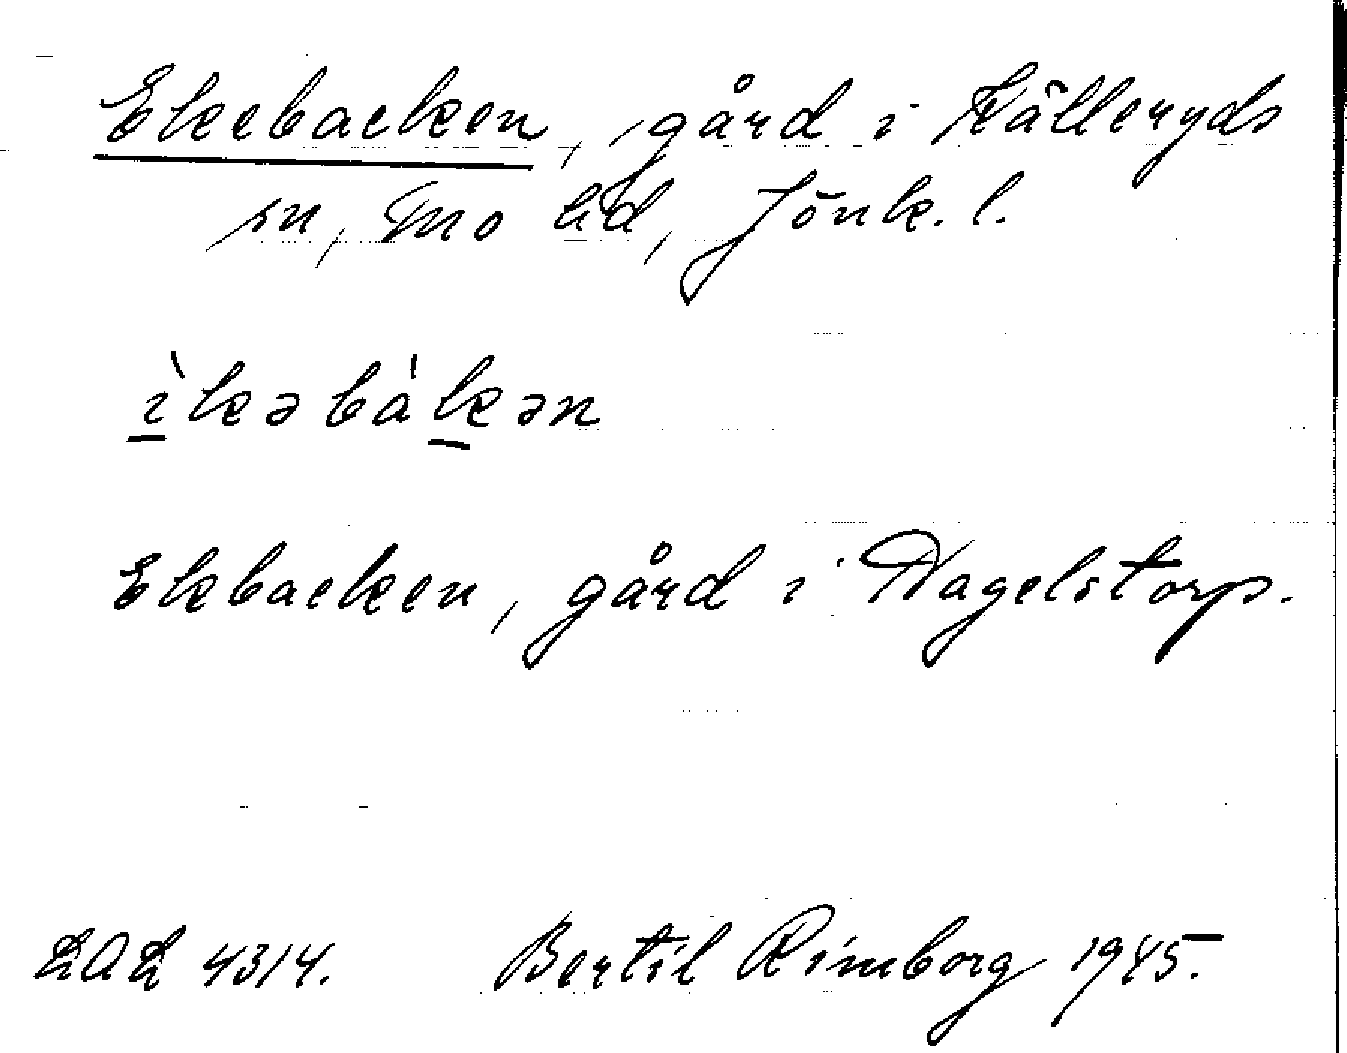 Ekebacken, gård i Källeryds
sn, Mo hd, Jönk. l.
ı̀kəbàkən
Ekbacken, gård i Nagelstorp.
LAL 4314. Bertil Rimborg 1945.